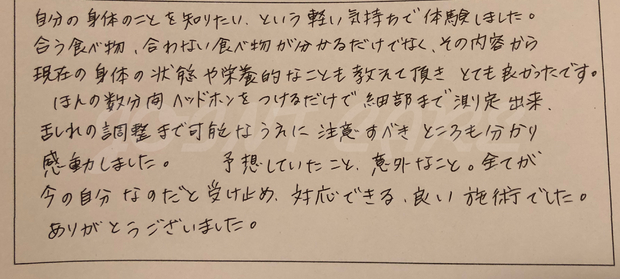 自分の身体のことを知りたい、という軽い気持ちで体験しました。
合う食べ物、合わない食べ物が分かるだけでなく、その内容から
現在の身体の状態や栄養的なことも教えて頂き とても良かったです。
ほんの数分間ヘッドホンをつけるだけで細部まで測定出来、
乱れの調整まで可能なうえに 注意すべきところも分かり
感動しました。 予想していたこと、意外なこと。全てが
今の自分なのだと受け止め、対応できる、良い施術でした。
ありがとうございました。